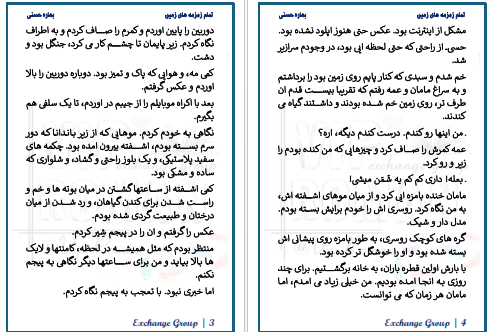 تمام زمزمه های زمین
بهاره حسنی
دوربین را پایین اوردم و کمرم را صاف کردم و به اطراف
نگاه کردم. زیر پایمان تا چشم کار می کرد، جنگل بود و
دشت.
کمی مه، و هوایی که پاک و تمیز بود. دوباره دوربین را بالا
اوردم و عکس گرفتم.
بعد با اکراه موبایلم را از جیبم در اوردم، تا یک سلفی هم
بگیرم.
نگاهی به خودم کردم. موهایی که از زیر باندانا که دور
سرم بسته بودم، اشفته بیرون امده بود. چکمه های
سفید پلاستیکی، و یک بلوز راحتی و گشاد، و شلواری که
ساده و مشکی بود.
کمی اشفته از ساعتها گشتن در میان بوته ها و خم و
راست شدن برای کندن گیاهان، و رد شدن از میان
درختان و طبیعت گردی شده بودم.
عکس را گرفتم و ان را در پیجم شِیر کردم.
منتظر بودم که مثل همیشه در لحظه، کامنتها و لایک
ها بالا بیاید و من برای ساعتها دیگر نگاهی به پیجم
نکنم.
اما خبری نبود. با تعجب به پیجم نگاه کردم.
Exchange Group | 3
تمام زمزمه های زمین
بهاره حسنی
مشکل از اینترنت بود. عکس حتی هنوز اپلود نشده بود.
حسی، از راحتی که حتی لحظه ایی بود، در وجودم سرازیر
شد.
خم شدم و سبدی که کنار پایم روی زمین بود را برداشتم
و به سراغ مامان و عمه رفتم که تقریبا بیست قدم ان
طرف تر، روی زمین خم شده بودند و داشتند گیاه می
کندند.
. من اینها رو کندم. درست کندم دیگه، اره؟
عمه کمرش را صاف کرد و چیزهایی که من کنده بودم را
زیر و رو کرد.
. بعله! داری کم کم یه شَمَن میشی!
مامان خنده بامزه ایی کرد و از میان موهای اشفته اش،
به من نگاه کرد. روسری اش را خودم برایش بسته بودم.
مدل دار و شیک.
گره های کوچک روسری، به طور بامزه روی پیشانی اش
بسته شده بود و او را خوشگل تر کرده بود.
با بارش اولین قطره باران، به خانه برگشتیم. برای چند
روزی به انجا امده بودیم. من خیلی زیاد می امدم، اما
مامان هر زمان که می توانست.
Exchange Group | 4